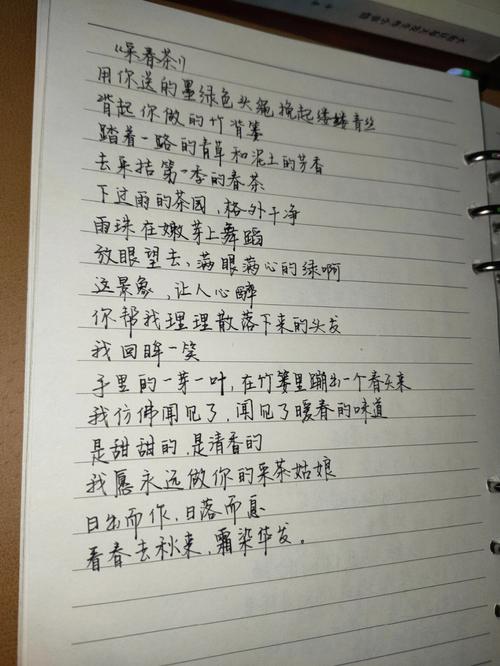 《采春茶》
用你送的墨绿色头绳挽起缕缕青丝
背起你做的竹背篓
踏着一路的青草和泥土的芳香
去采拮第一季的春茶
下过雨的茶园，格外干净
雨珠在嫩芽上舞蹈
放眼望去、满眼满心的绿啊
这景象，让人心醉
你帮我理理散落下来的头发
我回眸一笑
手里的一芽一叶，在竹篓里蹦出一个春天来
我仿佛闻见了，闻见了暖春的味道
是甜甜的，是清香的
我愿永远做你的采茶姑娘
日出而作，日落而息
看春去秋来，霜染华发。